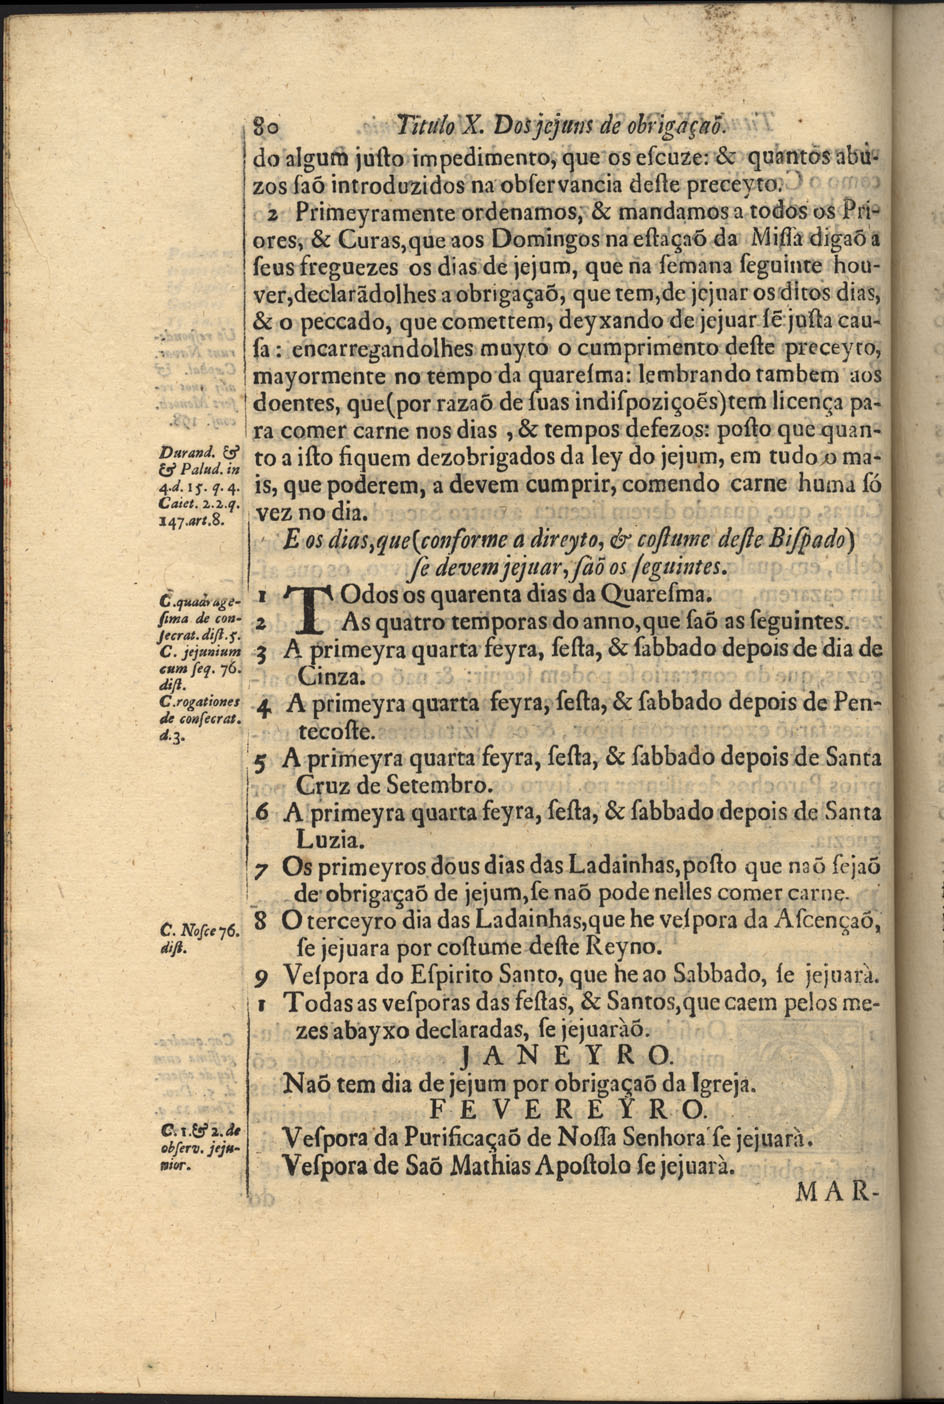 80 Titulo X. Dos jejuns de obrigaçaõ.
do algum juſto impedimento, que os eſcuze: & quantos abu-
zos ſaõ introduzidos na obſervancia deſte preceyto.
2 Primeyramente ordenamos, & mandamos a todos os Pri-
ores, & Curas, que aos Domingos na eſtaçaõ da Miſſa digaõ a
ſeus freguezes os dias de jejum, que na ſemana ſeguinte hou-
ver, declarãdolhes a obrigaçaõ, que tem, de jejuar os ditos dias,
& o peccado, que comettem, deyxando de jejuar ſẽ juſta cau-
ſa: encarregandolhes muyto o cumprimento deſte preceyto,
mayormente no tempo da quareſma: lembrando tambem aos
doentes, que (por razaõ de ſuas indiſpoziçoẽs) tem licença pa-
ra comer carne nos dias, & tempos defezos: poſto que quan-
to a iſto fiquem dezobrigados da ley do jejum, em tudo o ma-
is, que poderem, a devem cumprir, comendo carne huma ſó
vez no dia.
Durand. &
& Palud. in
4. d. 15. q. 4.
Caiet. 2. 2. q.
147. art. 8.
E os dias, que (conforme a direyto, & coſtume deſte Biſpado)
ſe devem jejuar, ſaõ os ſeguintes.
1 TOdos os quarenta dias da Quareſma.
2 As quatro temporas do anno, que ſaõ as ſeguintes.
3 A primeyra quarta feyra, ſeſta, & ſabbado depois de dia de
Cinza.
4 A primeyra quarta feyra, ſeſta, & ſabbado depois de Pen-
tecoſte.
C. quadrage-
ſima de con-
ſecrat. diſt. 5.
C. jejunium
cum ſeq. 76.
diſt.
C. rogationes
de conſecrat.
d. 3.
5 A primeyra quarta feyra, ſeſta, & ſabbado depois de Santa
Cruz de Setembro.
6 A primeyra quarta feyra, ſeſta, & ſabbado depois de Santa
Luzia.
7 Os primeyros dous dias das Ladainhas, poſto que naõ ſejaõ
de obrigaçaõ de jejum, ſe naõ pode nelles comer carne.
8 O terceyro dia das Ladainhas, que he veſpora da Aſcençaõ,
ſe jejuara por coſtume deſte Reyno.
C. Noſce 76.
diſt.
9 Veſpora do Eſpirito Santo, que he ao Sabbado, ſe jejuarà.
1 Todas as veſporas das feſtas, & Santos, que caem pelos me-
zes abayxo declaradas, ſe jejuaràõ.
JANEYRO.
Naõ tem dia de jejum por obrigaçaõ da Igreja.
FEVEREYRO.
Veſpora da Purificaçaõ de Noſſa Senhora ſe jejuarà.
Veſpora de Saõ Mathias Apoſtolo ſe jejuarà.
C. 1. & 2. de
obſerv. jeju-
nior.
MAR-